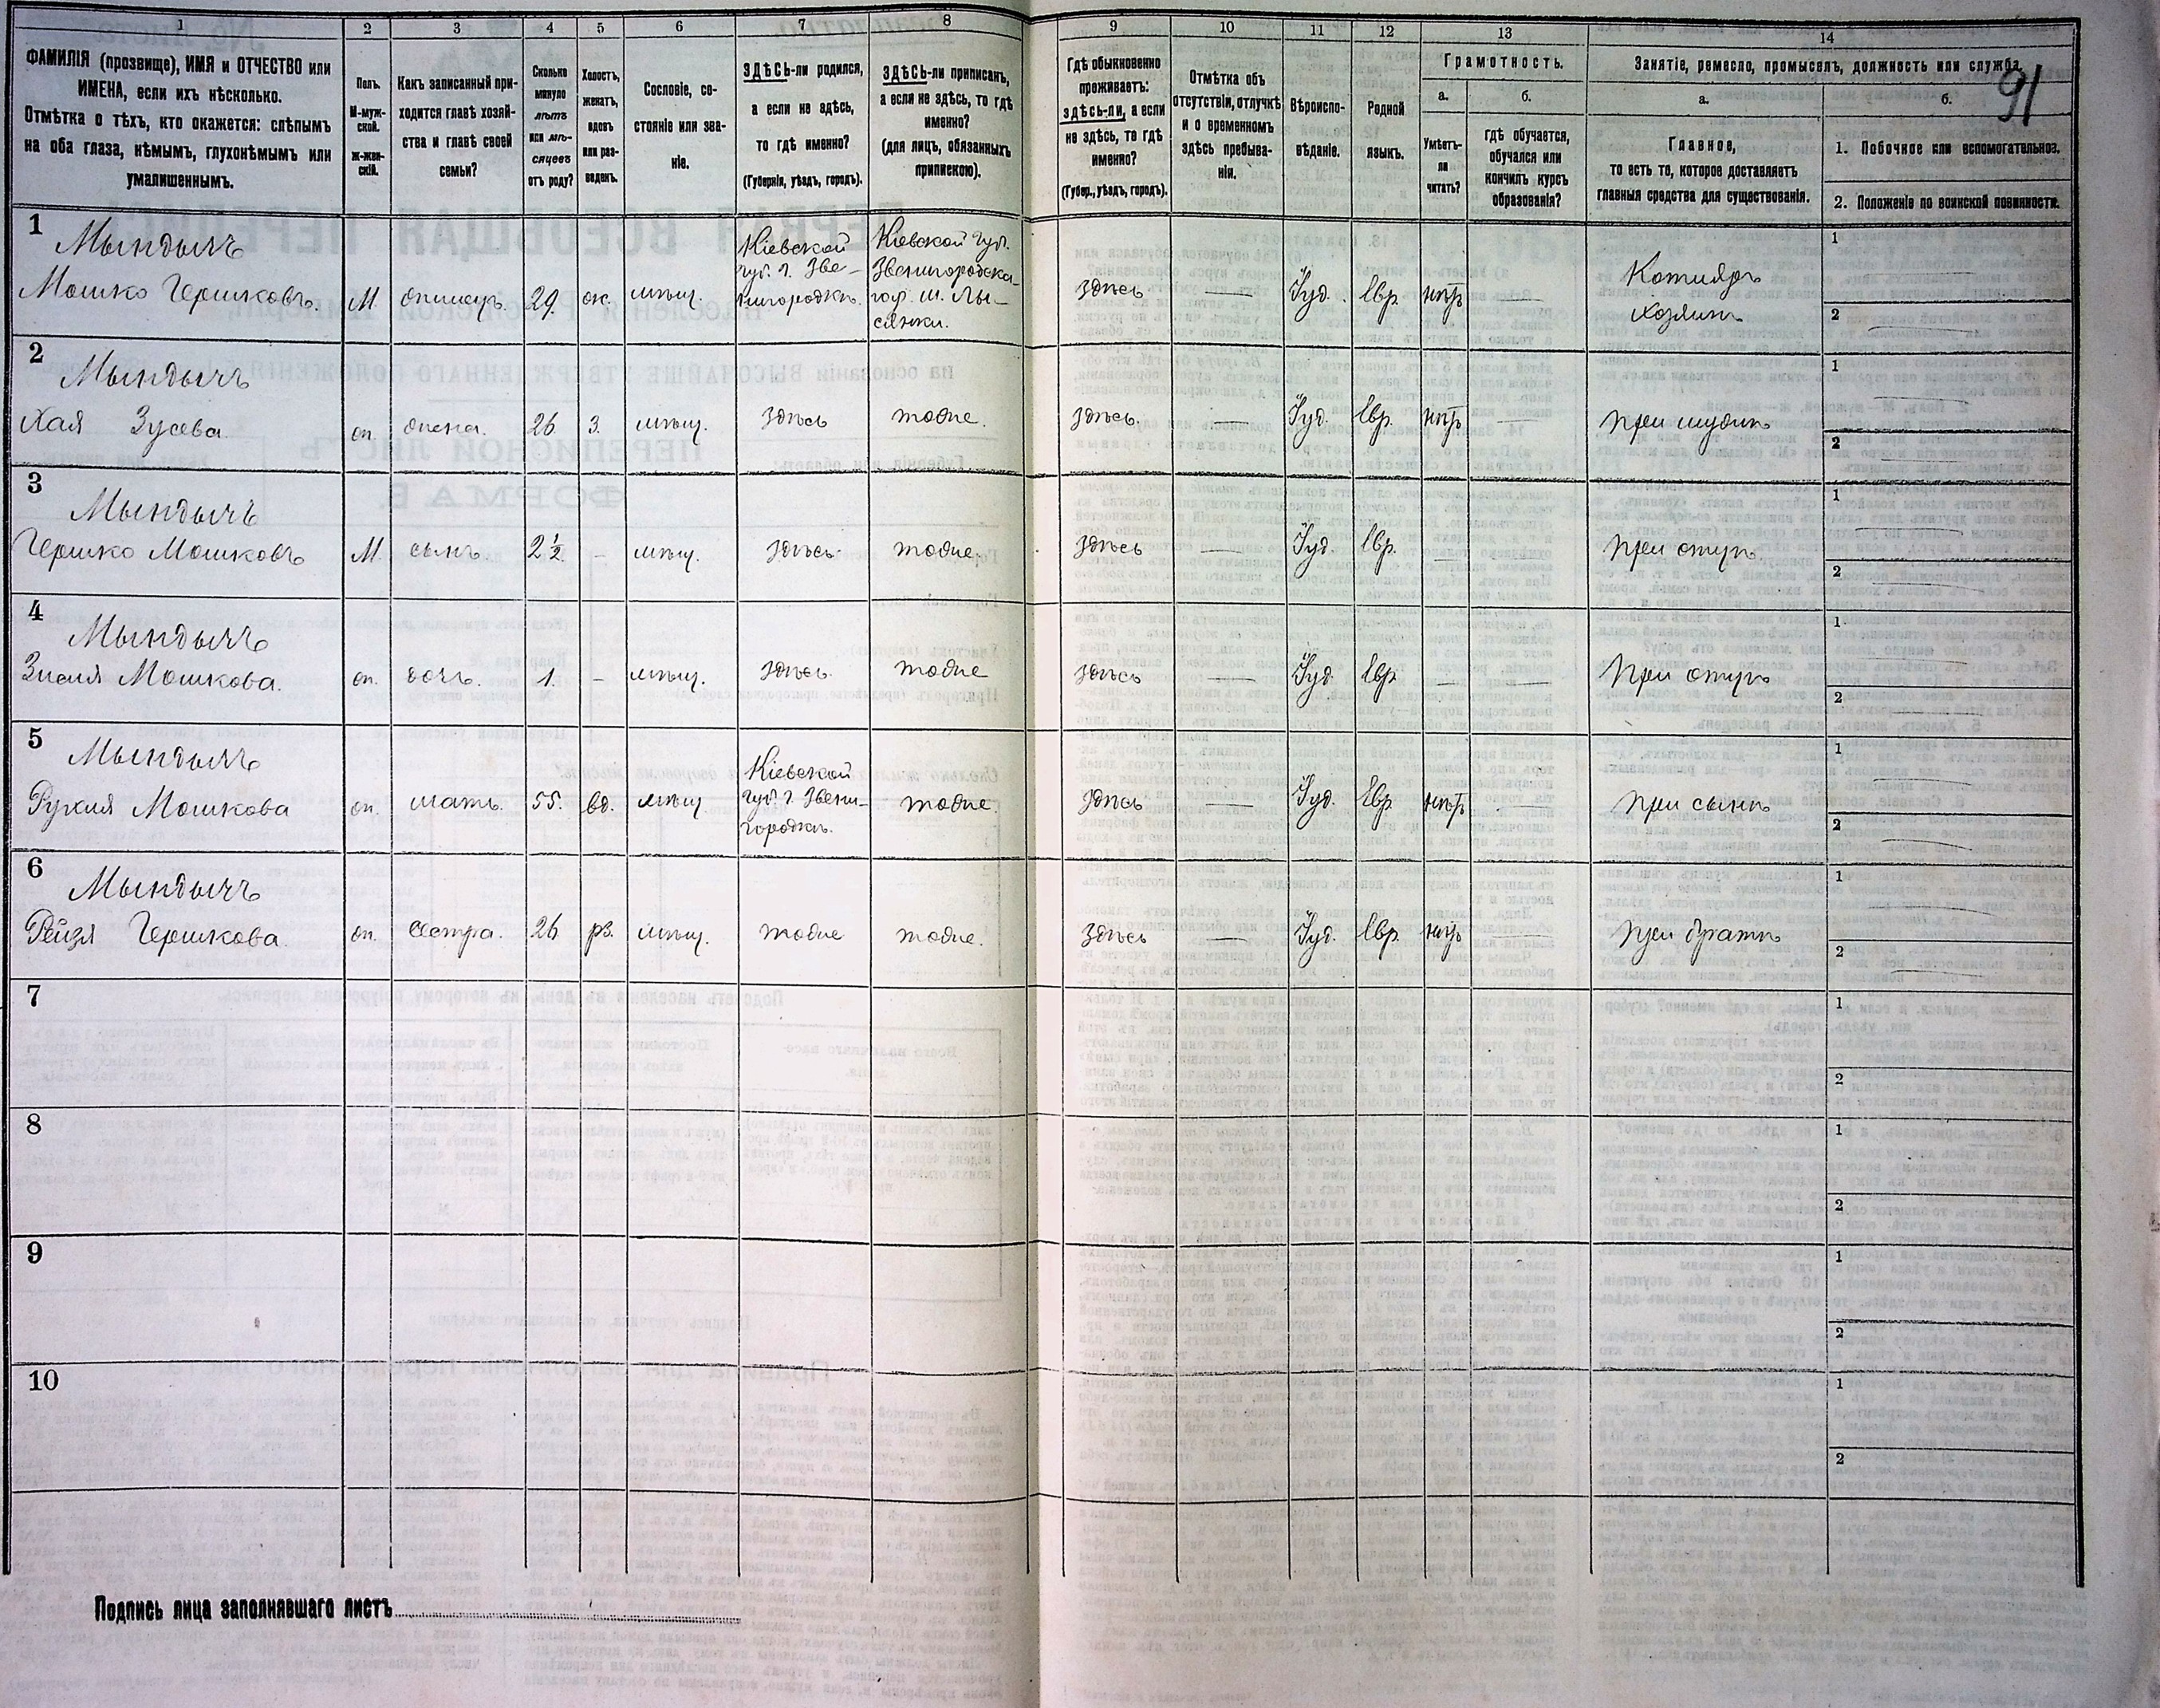 1 2 3 4 5 6 7 8 9 10 11 12 13 14
91
ФАМИЛІЯ (прозвище), ИМЯ и ОТЧЕСТВО или
ИМЕНА, если ихъ нѣсколько.
Отмѣтка о тѣхъ, кто окажется: слѣпымъ
на оба глаза, нѣмымъ, глухонѣмымъ или
умалишеннымъ.
Полъ.
М-муж-
ской.
ж-жен-
скій.
Какъ записанный при-
ходится главѣ хозяй-
ства и главѣ своей
семьи?
Сколько
минуло
лѣтъ
или мѣ-
сяцевъ
отъ роду?
Холостъ,
женатъ,
вдовъ
или раз-
веденъ.
Сословіе, со-
стояніе или зва-
ніе.
ЗДѢСЬ-ли родился,
а если не здѣсь,
то гдѣ именно?
(Губернія, уѣздъ, городъ).
ЗДѢСЬ-ли приписанъ,
а если не здѣсь, то гдѣ
именно?
(для лицъ, обязанныхъ
припискою).
Гдѣ обыкновенно
проживаетъ:
здѣсь-ли, а если
не здѣсь, то гдѣ
именно?
(Губер., уѣздъ, городъ).
Отмѣтка объ
отсутствіи, отлучкѣ
и о временномъ
здѣсь пребыва-
ніи.
Вѣроиспо-
вѣданіе.
Родной
языкъ.
Грамотность.
а.
Умѣетъ-
ли
читать?
б.
гдѣ обучается,
обучался или
кончилъ курсъ
образованія?
Занятіе, ремесло, промыселъ, должность или служба.
а.
Главное,
то есть то, которое доставляетъ
главныя средства для существованія.
б.
1. Побочное или вспомогательное.
2. Положеніе по воинской повинности.
1
Мындычъ
Мошко Гершковъ.
М
29.
мѣщ.
Кіевской
губ. г. Зве-
нигородкѣ.
Кіевской губ.
Звенигородска-
го у. м. Лы-
сянки.
здѣсь
—
Іуд.
Евр.
нѣтъ
—
хозяинъ
1
2
2
Мындычъ
Хая Зусева.
ж.
жена.
26
З.
мѣщ.
здѣсь
тоже.
здѣсь.
—
Іуд.
Евр.
нѣтъ
—
при мужѣ
1
2
3
Мындычъ
Гершко Мошковъ
М.
сынъ.
2 1/2.
-
мѣщ.
здѣсь.
тоже.
здѣсь
—
Іуд.
Евр.
—
—
при отцѣ
1
2
4
Мындычъ
Мошкова.
ж.
дочь.
1.
-
мѣщ.
здѣсь.
тоже
здѣсь
—
Іуд.
Евр.
—
—
При отцѣ
1
2
5
Мындычъ
Мошкова
ж.
мать.
55.
вд.
мѣщ
Кіевской
губ. г. Звени-
городкѣ.
тоже.
здѣсь
—
Іуд.
Евр.
нѣтъ
—
при сынѣ
1
2
6
Мындычъ
Рейзя Гершкова.
ж.
сестра.
26
рз.
мѣщ.
тоже
тоже.
здѣсь
—
Іуд.
Евр.
нѣтъ
—
при братѣ
1
2
7
1
2
8
1
2
9
1
2
10
1
2
Подпись лица заполнявшаго листъ